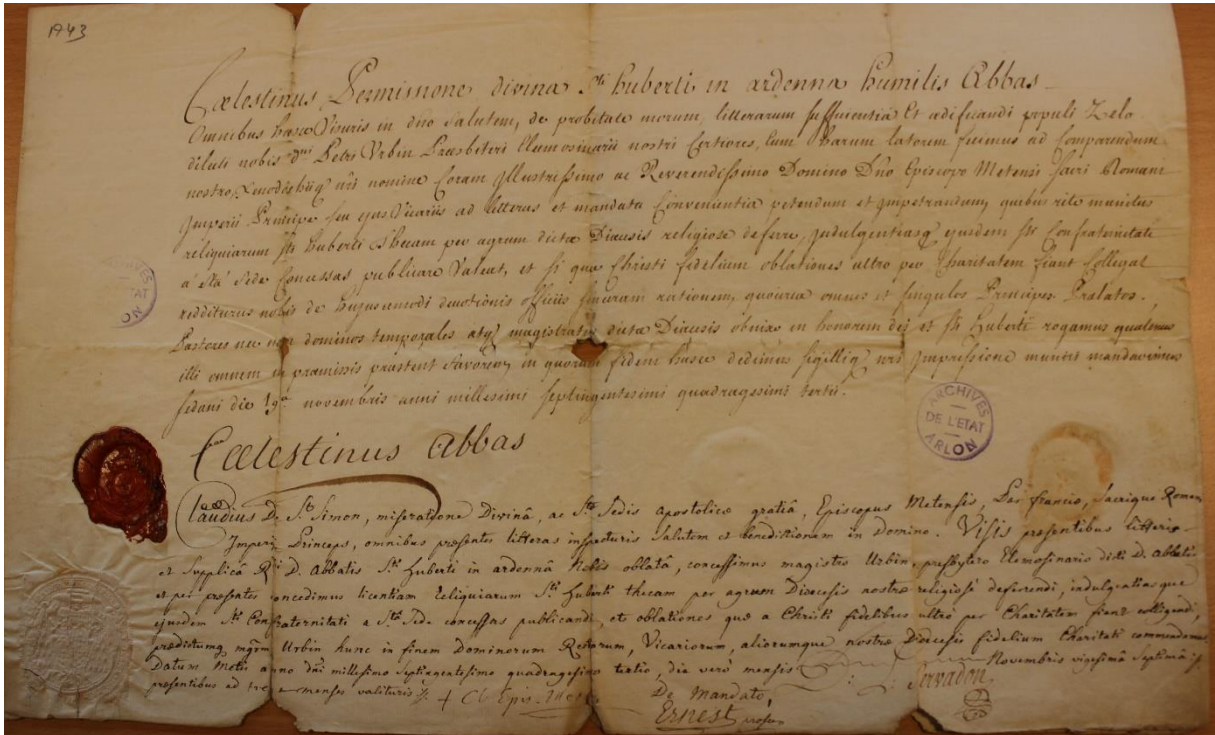 1743
Cœlestinus Permissione divina Sti huberti in ardenna humilis Abbas
Omnibus hasce Visuris in dno Salutem, de probitate morum, litterarum sufficientia Et ædificandi populi Zelo
dilecti nobis dni Petri Urbin Præsbiteri Elemosinarii nostri Certiores, Eum harum latorem fecimus ad Comparendum
nostro, nomine Coram Illustrissimo ac Reverendissimo Domino Dno Episcopo Metensi Sacri Romani
Imperii Principe seu ejus Vicariis ad litteras et mandata Convenientia petendum et Impetrandum quibus rite munitus
reliquiarum sti huberti thecam per agrum dictæ Diœcesis religiose deferre, Indulgentiasq ejusdem sti Confraternitati
à Stâ Sede Concessas publicare Valeat, et si quæ Christi fidelium oblationes ultro per Charitatem fiant Collegat
redditurus nobis de hujuscemodi devotionis officiis sinceram rationem, quocirca omnes et singulos Principes Prælatos
Pastores nec non dominos temporales atq magistratus dictæ Diœcesis obnixe in honorem dei et sti huberti rogamus quatenus
illi omnem in præmissis præstent favorem, in quorum fidem hasce dedimus sigilliq nri Impressione muniri mandavimus
sedani die 19a novembris anni millesimi septingentesimi quadragesimi tertii.
Cœlestinus Abbas
ARCHIVES
DE L'ETAT
ARLON
Claudius De St Simon, miseratione Divinâ, ac Stæ Sedis apostolicæ gratiâ, Episcopus Metensis, Par franciæ, Sacrique Romani
Imperii Princeps, omnibus præsentes litteras inspecturis Salutem et benedictionem in Domino. Visis præsentibus litteris
et Supplicâ Rdi D. Abbatis Sti huberti in ardennâ Nobis oblatâ, concessimus magistro Urbin, presbytero Elemosinario dicti D. abbatis
et per præsentes concedimus licentiam Reliquiarum Sti huberti thecam per agrum Diœcesis nostræ religiosè deferendi, indulgentiasque
ejusdem Sti Confraternitati a Stâ Sede concessas publicandi, et oblationes quæ a Christi fidelibus ultro per Charitatem fiant colligendi,
prædictumq mgrm Urbin hunc in finem Dominorum Rectorum, Vicariorum, aliorumque nostræ Diœcesis fidelium Charitati commendamus
Datum Metis anno dni millesimo septingentesimo quadragesimo tertio, die verò mensis Novembris vigesimâ septimâ
præsentibus ad tres menses valituris % + Cl Epis. Mete
De Mandato,
Servadon
Ernest